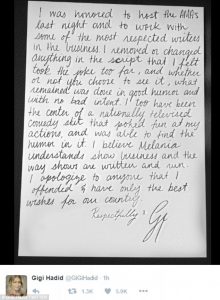 I was honored to host the AMAs
last night and to work with
some of the most respected writers
in the business. I removed or changed
anything in the script that I felt
took the joke too far, and whether
or not you choose to see it, what
remained was done in good humor and
with no bad intent. I too have been
the center of a nationally televised
comedy skit that poked fun at my
actions, and was able to find the
humor in it. I believe Melania
understands show business and the
way shows are written and run.
I apologize to anyone that I
offended & have only the best
wishes for our country.
Respectfully, G
Gigi Hadid @GiGiHadid 1h
1.3K 5.9K